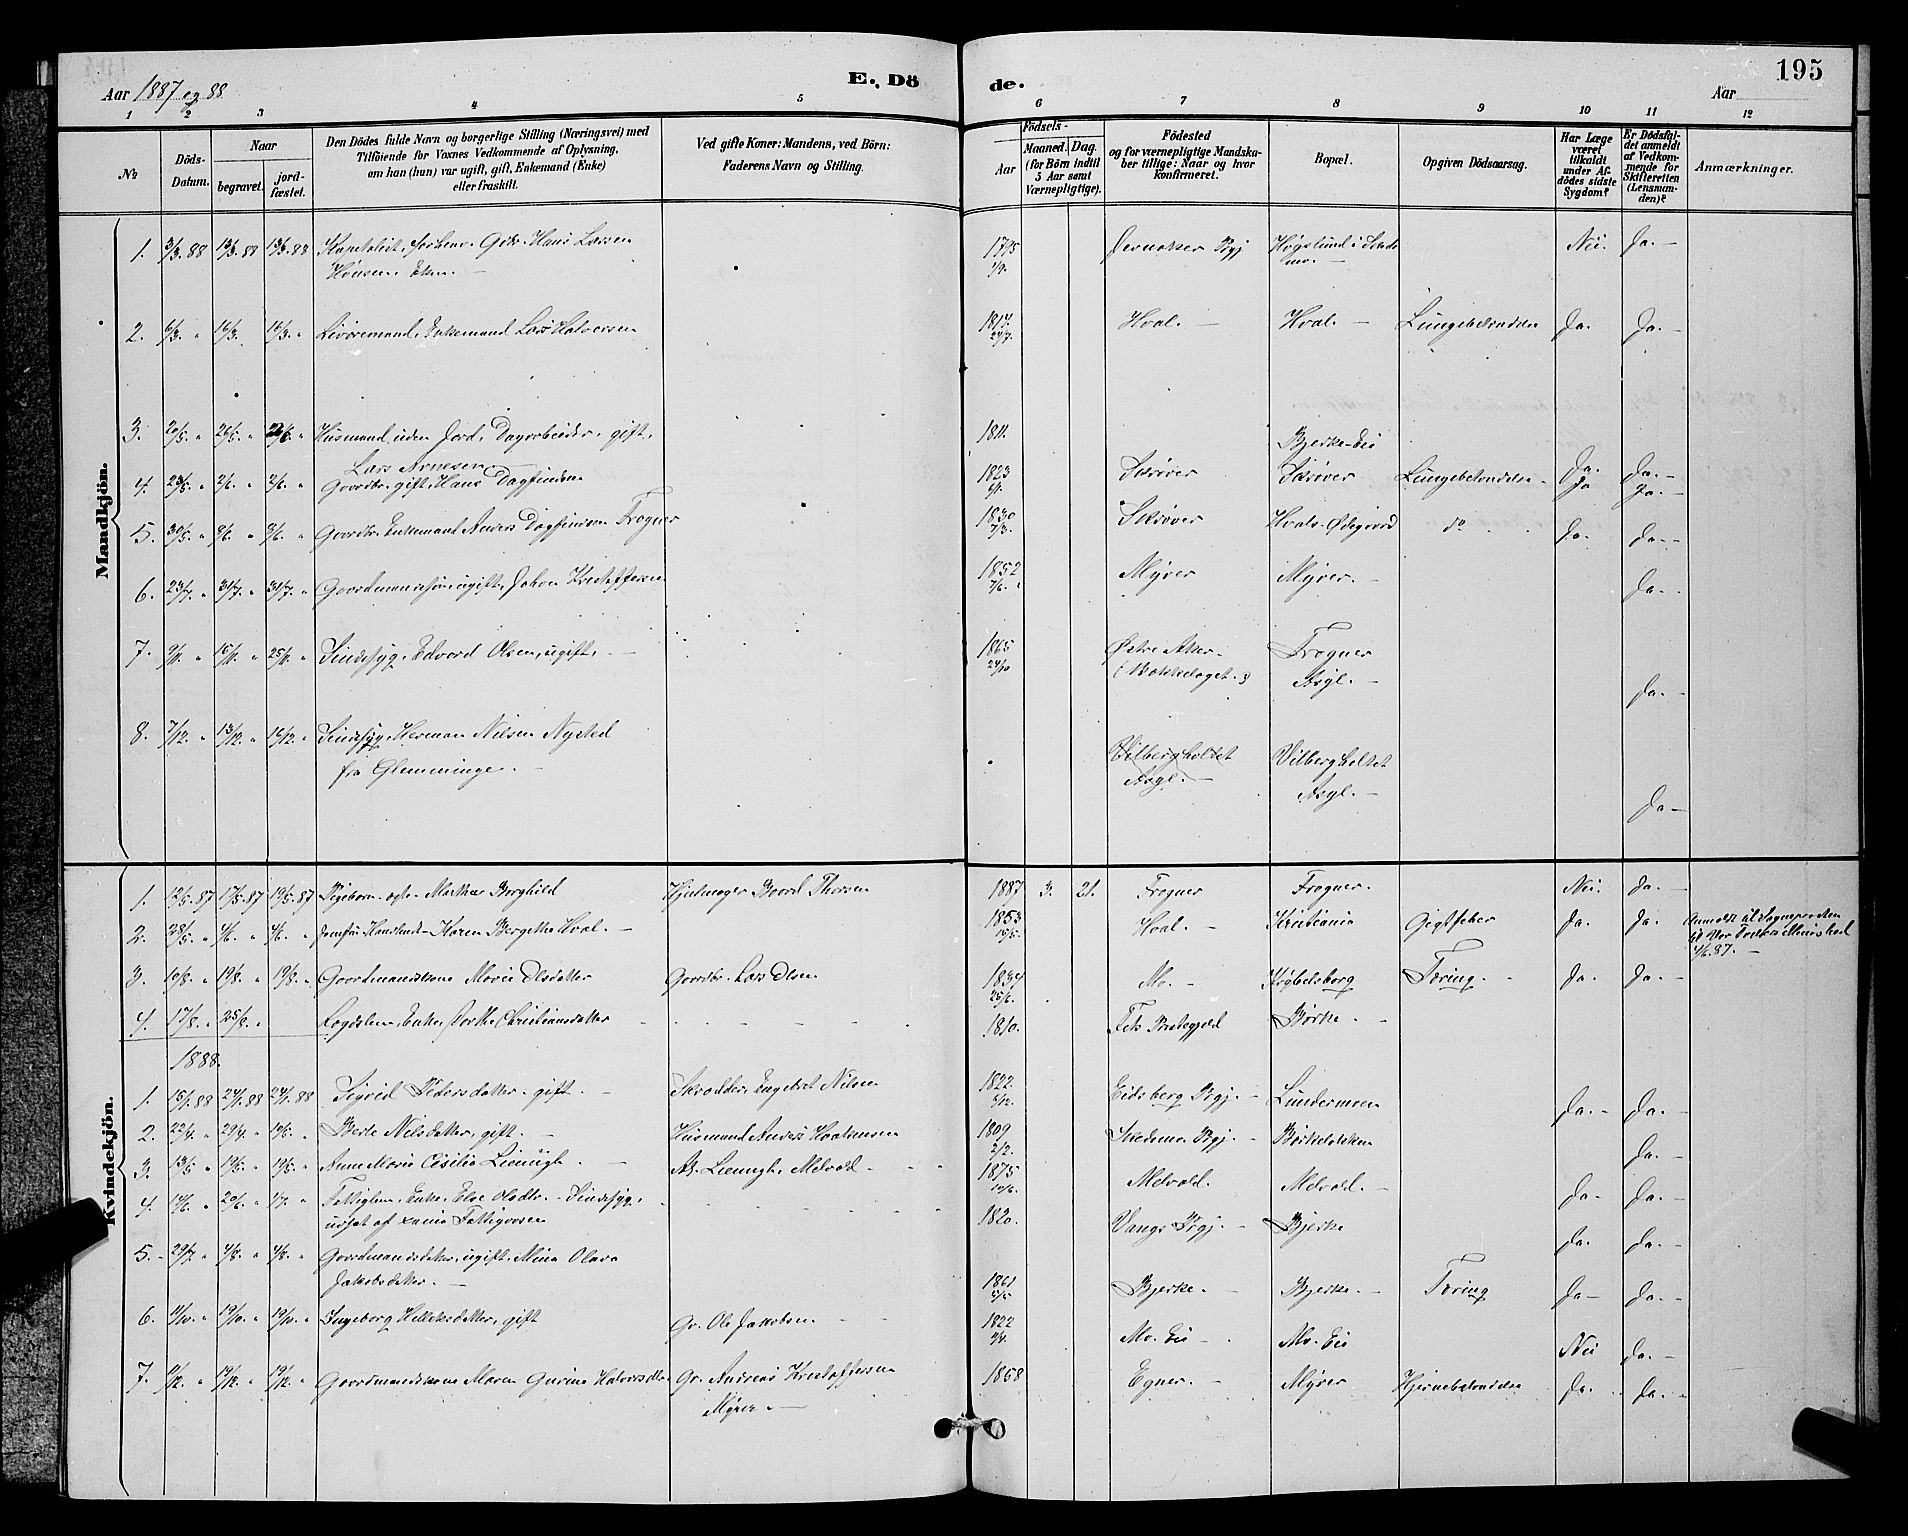 Aar 1887 og 88.
E. Dö
de.
195
Aar
1 2 3 4 5 6 7 8 9 10 11 12
No
Döds-Datum.
Naar
begravet.
jordfæstet.
Den Dödes fulde Navn og borgerlige Stilling (Næringsvei) med
Tilföiende for Voxnes Vedkommende af Oplysning,
om han (hun) var ugift, gift, Enkemand (Enke)
eller fraskilt.
Ved gifte Koner: Mandens, ved Börn:
Faderens Navn og Stilling.
Födsels-
Aar
Maaned. Dag.
(for Börn indtil
5 Aar samt
Værnepligtige).
Födested
og for værnepligtige Mandska-
ber tillige: Naar og hvor
konfirmeret.
Bopæl.
Opgiven Dödsaarsag.
Har Læge
været
tilkaldt
under Af-
dödes sidste
Sygdom?
Er Dödsfal-
det anmeldt
af Vedkom-
mende for
Skifteretten
(Lensman-
den)?
Anmærkninger.
Mandkjön.
1. 3/3 88 13/3 88 13/3 88 forhenv. Gbr. Hans Larsen 1795 Pgj Nei. Ja.
2. 6/3 " 16/3 16/3 " Enkemand Lars Halvorsen 1814 24/7 Hval. Hval. Lungebetændelse Ja. Ja.
3. 20/5 " 26/5 " 26/5 " Husmand uden Jord, Dagarbeider, gift, 1811. Bjerke-Eie
Lars Arnesen Ja. Ja.
4. 23/5 " 2/6 " 2/6 " Gaardbr. gift, Hans Dagfindsen 1823 Skrøver Skrøver Lungebetændelse Ja Ja.
5. 30/5 " 9/6 " 9/6 " Gaardbr. Enkemand Anders Dagfindsen Frogner 1830 7/3 Skrøver Hvals-Ødegaard do Ja. Ja.
6. 23/7 " 31/7 " 31/7 " Gaardmandssøn, ugift, Johan Kristoffersen 1852 7/6 Myrer Myrer. Ja.
7. 9/11 " 15/11 " 25/11 " Sindssyg, Edvard Olsen, ugift. 1865 24/10 Østre Aker Frogner
(Bækkelaget.) Asyl. Ja.
8. 7/12 " 13/12 " 16/12 " Sindssyg, Herman Nilsen Nysted Vilbergholtet Vilbergholtet
fra Glemminge. Asyl. Asyl. Ja
Kvindekjön.
1. 12/5 87 17/5 87 19/5 87 Pigebarn ægte Marthea Borghild Hjulmager Baard Thorsen 1887 3. 21. Frogner Frogner. Nei Ja.
2. 28/5 " 4/6 " 4/6 " Karen Bergitte Hval. 1853 19/5 Hval. Kristiania Gigtfeber Ja. Ja. Anmeldt til Sognepresten
til Vor Frelsers Menighed
4/6 87.
3. 10/8 " 19/8 " 19/8 " Gaardmandskone Marie Olsdatter Gaardbr. Lars Olsen 1834 25/6 Mo. Tæring. Ja. Ja.
4. 17/8 " 25/8 " Lægdslem, Enke, Dorthe Christiansdatter 1810. Fets Prestegjæld Børke.
1888.
1. 15/1 88 24/1 88 24/1 88 Sigrid Pedersdatter, gift. Skrædder Engebret Nilsen 1822. 5/12 Eidsberg Pgj. Lundermoen Ja. Ja.
2. 22/4 " 29/4 " 19/5 " Berte Nilsdatter, gift. Husmand Anders Haakensen 1809 2/2 Skedsmo Pgj. Børkeløkken Ja.
3. 13/5 " 19/5 " 19/5 " Anne Marie Cesilie Lieungh A. Lieungh, Melvold 1875 10/6 Melvold. Melvold. Ja. Ja.
4. 14/6 " 20/6 " 1/7 " Fattiglem, Enke, Else Olsdtr. Sindssyg, 1820. Vangs Pgj. Bjerke
udsat af Fattigvæsen Ja. Ja.
5. 29/7 " 4/8 " 4/8 " Gaardmandsdatter, ugift, Mina Olava
Jakobsdatter. 1861 5/5 Bjerke. Bjerke. Tæring Ja Ja.
6. 11/10 " 19/10 " 19/10 " Ingeborg Helleksdatter, gift Gr. Ole Jakobsen 1822 9/4 Mo. Eie Mo. Eie Nei Ja.
7. 11/12 " 19/12 " 19/12 " Gaardmandskone Maren Gurine Halvorsdtr. Gr. Andreas Kristoffersen 1858 Egner. Myrer Hjernebetændelse Ja. Ja.
Myrer.